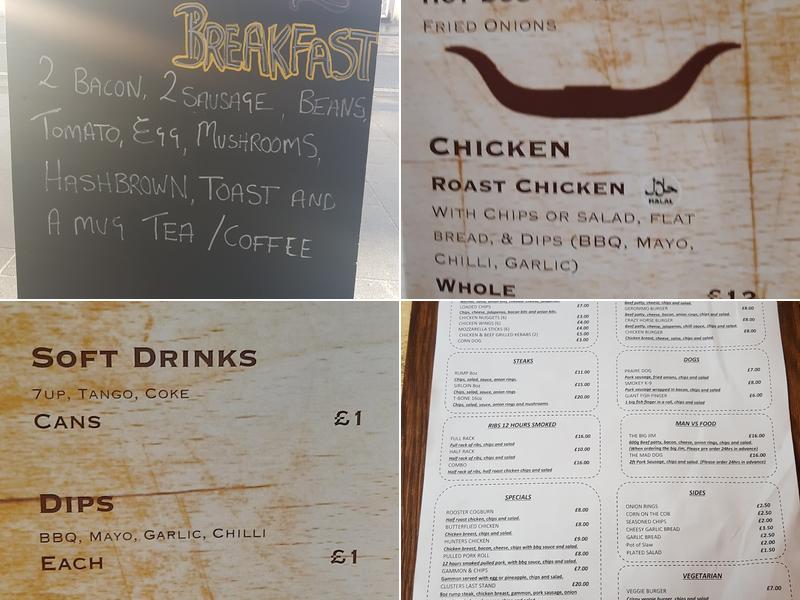 BREAKFAST
2 BACON, 2 SAUSAGE, BEANS,
TOMATO, Egg, MUSHROOMS,
HASHBROWN, TOAST AND
A MUG TEA / COFFEE
FRIED ONIONS
CHICKEN
ROAST CHICKEN حلال HALAL
WITH CHIPS OR SALAD, FLAT
BREAD, & DIPS (BBQ, MAYO,
CHILLI, GARLIC)
WHOLE
SOFT DRINKS
7UP, TANGO, COKE
CANS £1
DIPS
BBQ, MAYO, GARLIC, CHILLI
EACH £1
LOADED CHIPS £7.00
Chips, cheese, jalapenos, bacon bits and onion bits.
CHICKEN NUGGETS (6) £3.00
CHICKEN WINGS (6) £4.00
MOZZARELLA STICKS (6) £4.00
CHICKEN & BEEF GRILLED KEBABS (2) £5.00
CORN DOG £3.00
STEAKS
RUMP 8oz £11.00
Chips, salad, sauce, onion rings.
SIRLOIN 8oz £15.00
Chips, salad, sauce, onion rings
T-BONE 16oz £20.00
Chips, salad, sauce, onion rings and mushrooms
RIBS 12 HOURS SMOKED
FULL RACK £16.00
Full rack of ribs, chips and salad
HALF RACK £10.00
Half rack of ribs, chips and salad
COMBO £16.00
Half rack of ribs, half roast chicken chips and salad
SPECIALS
ROOSTER COGBURN £8.00
Half roast chicken, chips and salad.
BUTTERFLIED CHICKEN £8.00
Chicken breast, chips and salad.
HUNTERS CHICKEN £9.00
Chicken breast, bacon, cheese, chips with bbq sauce and salad.
PULLED PORK ROLL £8.00
12 hours smoked pulled pork, with bbq sauce, chips and salad.
GAMMON & CHIPS £7.00
Gammon served with egg or pineapple, chips and salad.
CLUSTERS LAST STAND £20.00
8oz rump steak, chicken breast, gammon, pork sausage, onion
Beef patty, cheese, chips and salad.
GERONIMO BURGER £8.00
Beef patty, cheese, bacon, onion rings, chips and salad.
CRAZY HORSE BURGER £8.00
Beef patty, cheese, jalapenos, chilli sauce, chips and salad.
CHICKEN BURGER £8.00
Chicken breast, cheese, salsa, chips and salad.
DOGS
PRAIRE DOG £7.00
Pork sausage, fried onions, chips and salad
SMOKEY K-9 £8.00
Pork sausage wrapped in bacon, chips and salad
GIANT FISH FINGER £6.00
1 big fish finger in a roll, chips and salad
MAN VS FOOD
THE BIG JIM £16.00
600g Beef patty, bacon, cheese, onion rings, chips and salad.
(When ordering the big Jim, Please pre order 24hrs in advance)
THE MAD DOG £16.00
2ft Pork Sausage, chips and salad. (Please order 24hrs in advance)
SIDES
ONION RINGS £2.50
CORN ON THE COB £2.50
SEASONED CHIPS £2.00
CHEESY GARLIC BREAD £3.50
GARLIC BREAD £2.50
Pot of Slaw £2.00
PLATED SALAD £1.50
VEGETARIAN
VEGGIE BURGER £7.00